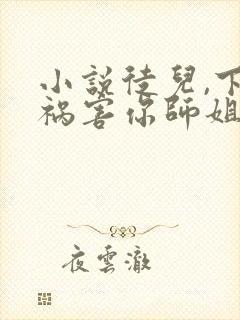 小說徒兒,下
禍害你師姐
夜雲澈